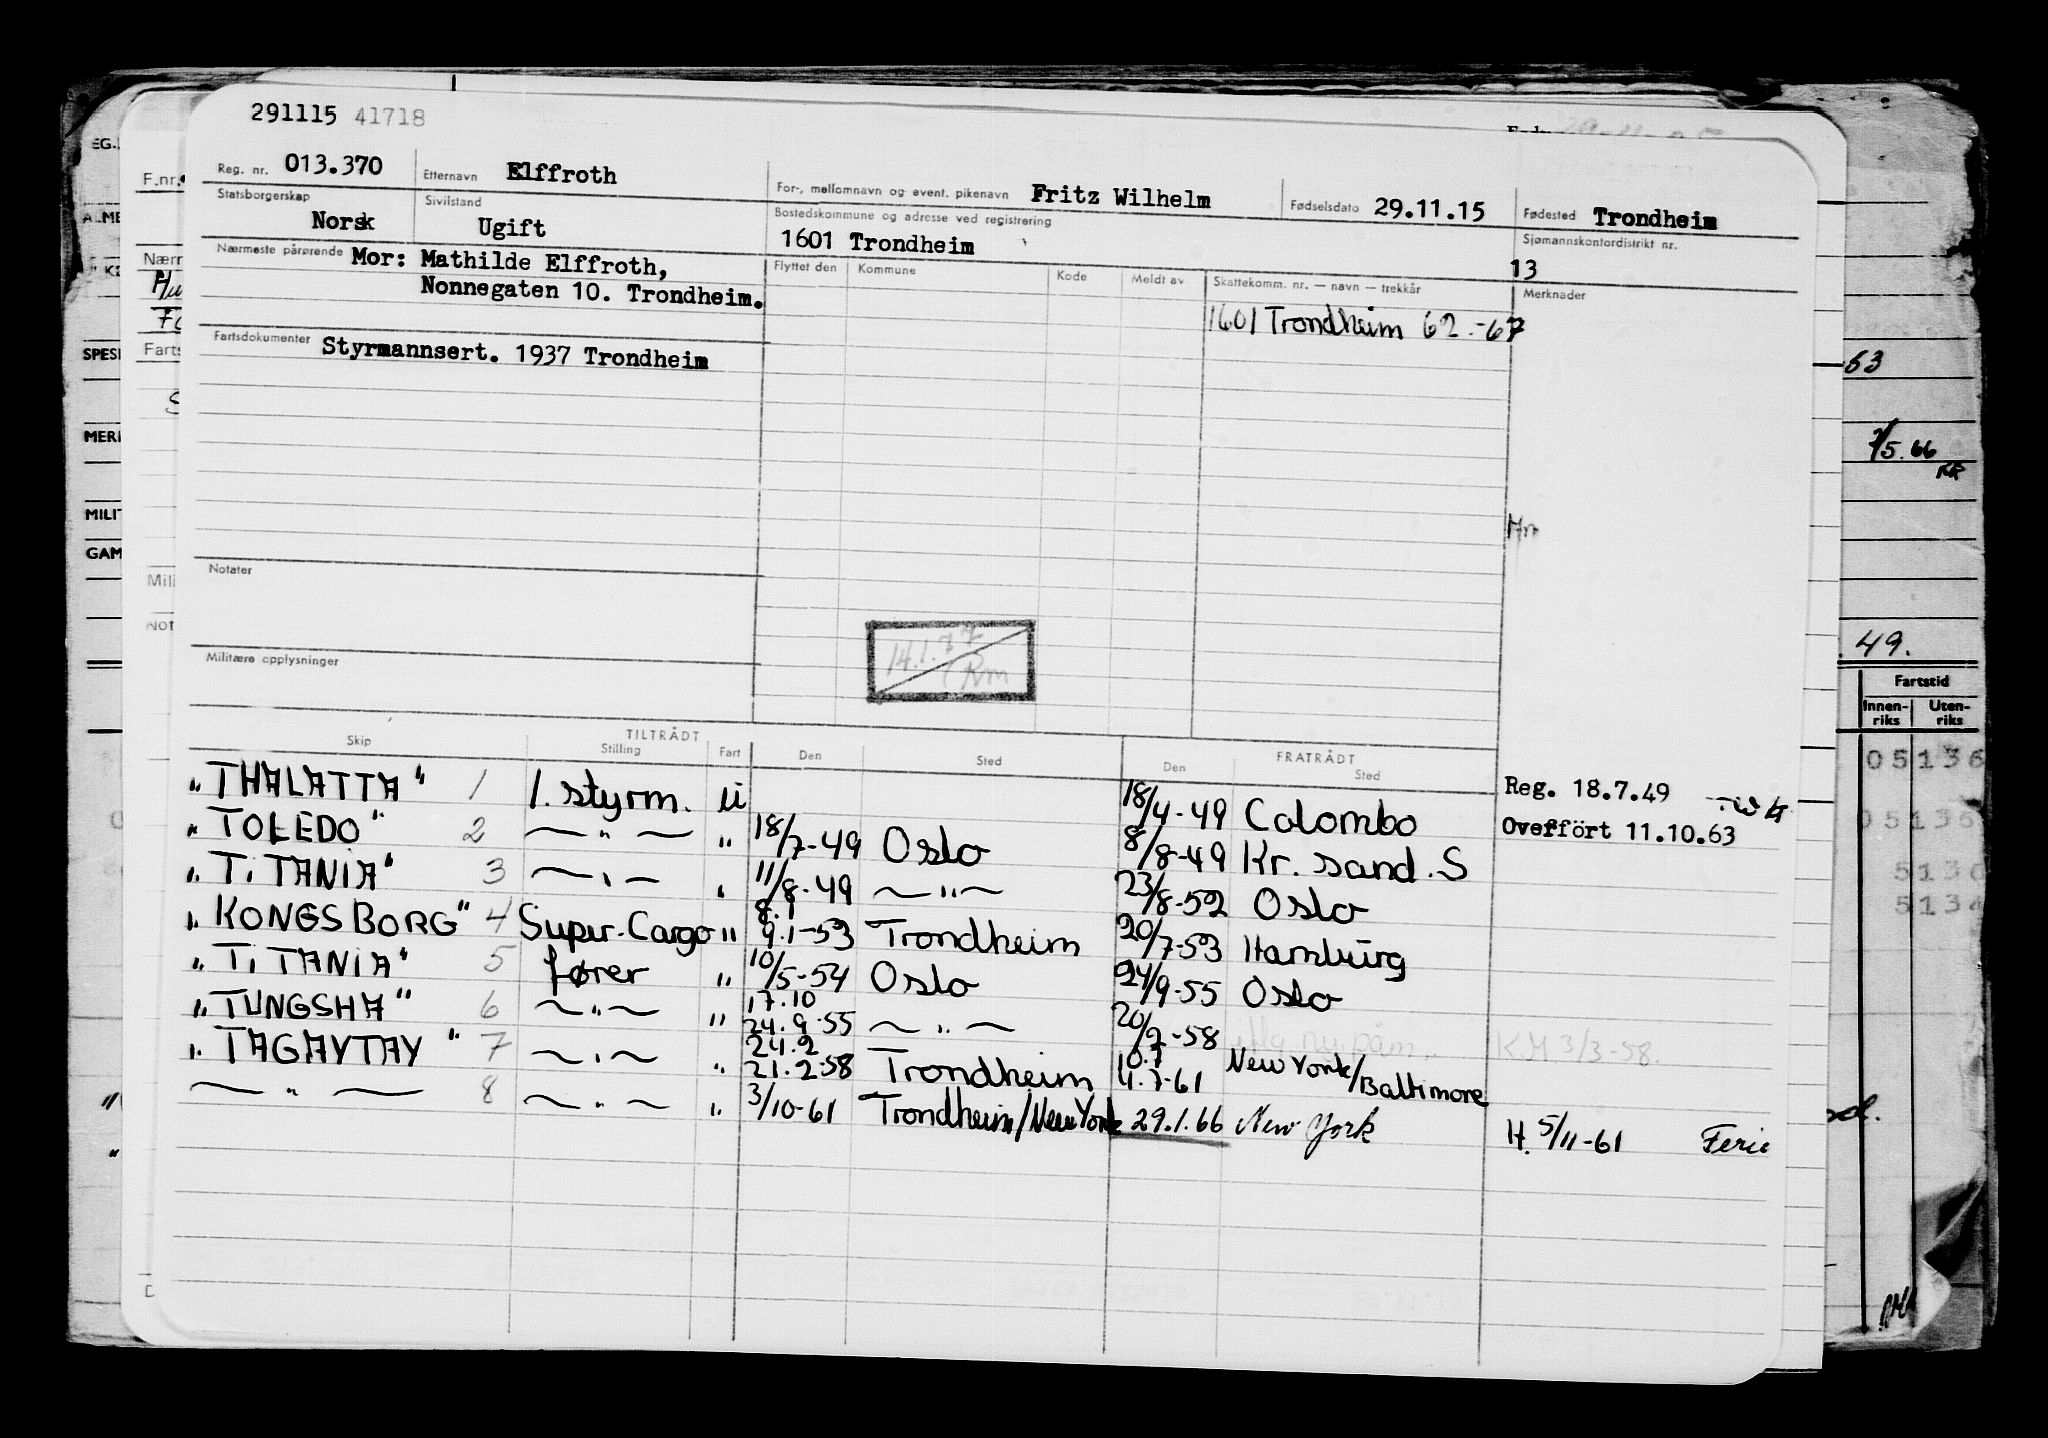 291115 41718
Reg. nr. 013.370 Etternavn Elffroth For-, mellomnavn og event. pikenavn Fritz Wilhelm Fødselsdato 29.11.15 Fødested Trondheim
Statsborgerskap Norsk Sivilstand Ugift Bostedskommune og adresse ved registrering 1601 Trondheim Sjømannskontordistrikt nr. 13
Nærmeste pårørende Mor: Mathilde Elffroth,
Nonnegaten 10. Trondheim.
Flyttet den Kommune Kode Meldt av Skattekomm. nr. — navn — trekkår Merknader
1601 Trondheim 62.-67
Fartsdokumenter Styrmannsert. 1937 Trondheim
Notater
14.1.77
Rm
Militære opplysninger
TILTRÅDT FRATRÅDT
Skip Stilling Fart Den Sted Den Sted
"THALATTA" 1 1. styrm. u 18/4-49 Colombo Reg. 18.7.49
"TOLEDO" 2 —"— " 18/7-49 Oslo 8/8-49 Kr. sand. S Oveffört 11.10.63
"TiTANiA" 3 —"— " 11/8-49 —"— 23/8-52 Oslo
"KONGSBORG" 4 Super-Cargo " 8.1 9.1-53 Trondheim 20/7-53 Hamburg
"TiTANiA" 5 fører " 10/5-54 Oslo 24/9-55 Oslo
"TUNGSHA" 6 —"— " 17.10 24.9.55 —"— 20/2-58 K.M 3/3-58.
"TAGAYTAY" 7 —"— " 24.2 21.2-58 Trondheim 10.7 4.7-61 New York/Baltimore
—"— 8 —"— " 3/10-61 Trondheim/New York 29.1.66 New York H. 5/11-61 Ferie
F.nr.
SPESI
MERI
MILIT
GAM
Mili
Not
-63
/5.66
49.
Fartstid
Innen-
riks
Uten-
riks
05136
05136
5136